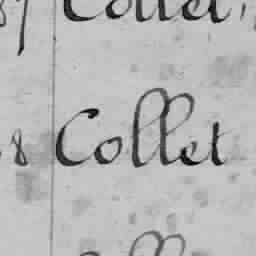 Collet
8 Collet